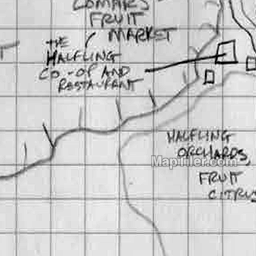 LOMAR'S
FRUIT
MARKET
THE
HALFLING
CO-OP AND
RESTAURANT
HALFLING
ORCHARDS,
FRUIT
CITRUS
MapTiler.com